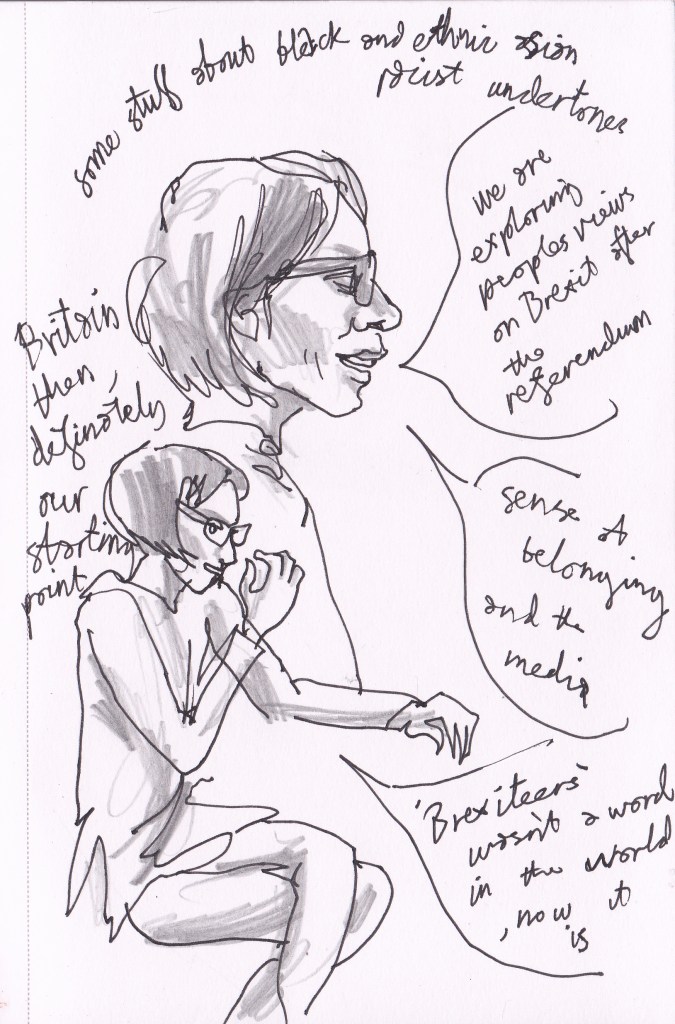 some stuff about black and ethnic asian
racist undertones
we are
exploring
peoples views
on Brexit after
the
referendum
Britain
then,
definotely
our
starting
point
sense of
belonging
and the
media
'Brexiteers'
wasn't a word
in the world
, now it
is